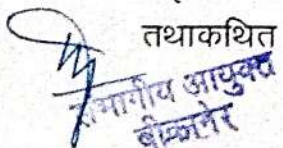 तथाकथित
संभागीय आयुक्त
बीकानेर